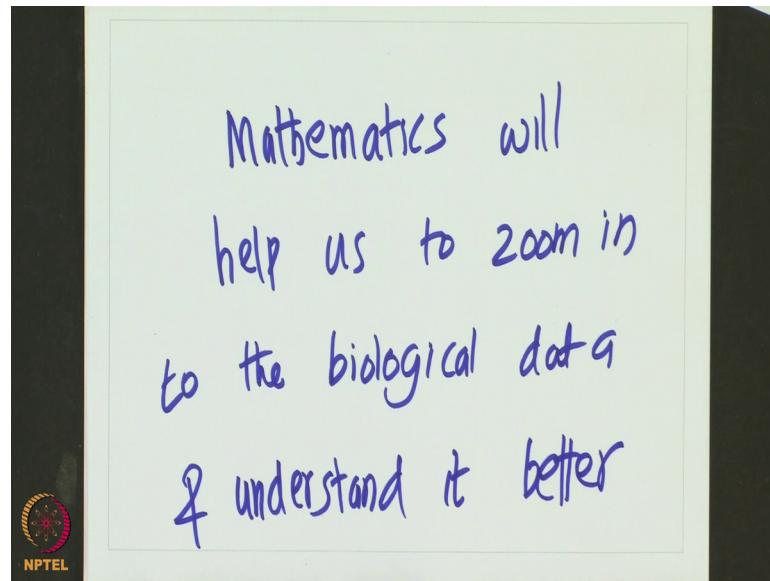 Mathematics will
help us to zoom in
to the biological data
& understand it better
NPTEL